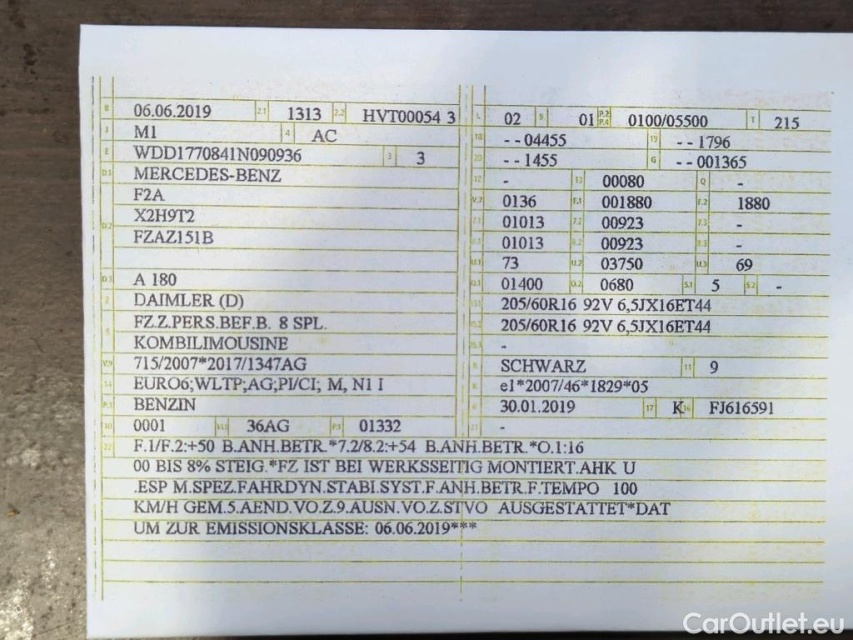 B 06.06.2019 2.1 1313 2.2 HVT00054 3
J M1 4 AC
E WDD1770841N090936 3 3
D.1 MERCEDES-BENZ
F2A
D.2 X2H9T2
FZAZ151B
D.3 A 180
2 DAIMLER (D)
5 FZ.Z.PERS.BEF.B. 8 SPL.
KOMBILIMOUSINE
V.9 715/2007*2017/1347AG
14 EURO6;WLTP;AG;PI/CI; M, N1 I
P.3 BENZIN
10 0001 14.1 36AG P.1 01332
L 02 9 01 P.2 P.4 0100/05500 T 215
18 --04455 19 --1796
20 --1455 G --001365
12 - 13 00080 Q -
V.7 0136 F.1 001880 F.2 1880
7.1 01013 7.2 00923 7.3 -
8.1 01013 8.2 00923 8.3 -
U.1 73 U.2 03750 U.3 69
O.1 01400 O.2 0680 S.1 5 S.2 -
15.1 205/60R16 92V 6,5JX16ET44
15.2 205/60R16 92V 6,5JX16ET44
15.3 -
R SCHWARZ 11 9
K e1*2007/46*1829*05
6 30.01.2019 17 K 16 FJ616591
21 -
22 F.1/F.2:+50 B.ANH.BETR.*7.2/8.2:+54 B.ANH.BETR.*O.1:16
00 BIS 8% STEIG.*FZ IST BEI WERKSSEITIG MONTIERT.AHK U
.ESP M.SPEZ.FAHRDYN.STABI.SYST.F.ANH.BETR.F.TEMPO 100
KM/H GEM.5.AEND.VO.Z.9.AUSN.VO.Z.STVO AUSGESTATTET*DAT
UM ZUR EMISSIONSKLASSE: 06.06.2019***
CarOutlet.eu